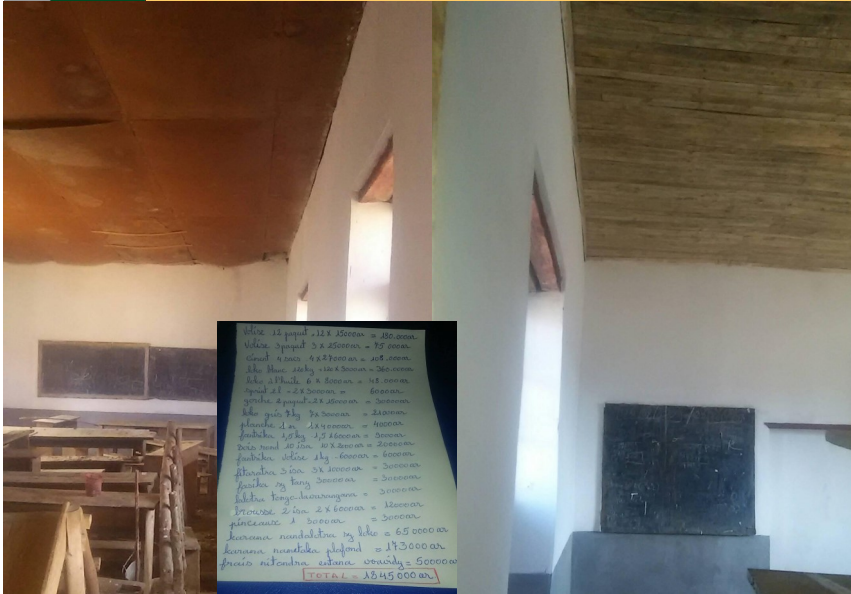 Volise 12 paquet . 12 x 15000ar = 180.000ar
Volise 3 paquet 3 x 25000ar = 75 000ar
ciment 4 sacs . 4 x 27000ar = 108.000ar
loko blanc 120kg = 120 x 3000ar = 360.000ar
loko à l'huile 6 x 8000ar = 48.000ar
2l = 2 x 3000ar = 6000ar
2 paquet = 2 x 15000ar = 30000ar
loko gris 7kg 7 x 3000ar = 21000ar
planche 1 m 1 x 4000ar = 4000ar
fantsika 1,5kg 1,5 x 6000ar = 9000ar
bois rond 10 isa 10 x 2000ar = 20000ar
fantsika volise 1kg 6000ar = 6000ar
fitaratra 3 isa 3 x 10000ar = 30000ar
fasika sy tany 30000ar = 30000ar
= 30000ar
brousse 2 isa 2 x 6000ar = 12000ar
pinceaux 1 3000ar = 3000ar
karama nandalotra sy loko = 650000ar
karama nametaka plafond = 173000ar
frais nitondra entana = 50000ar
TOTAL = 1845000ar